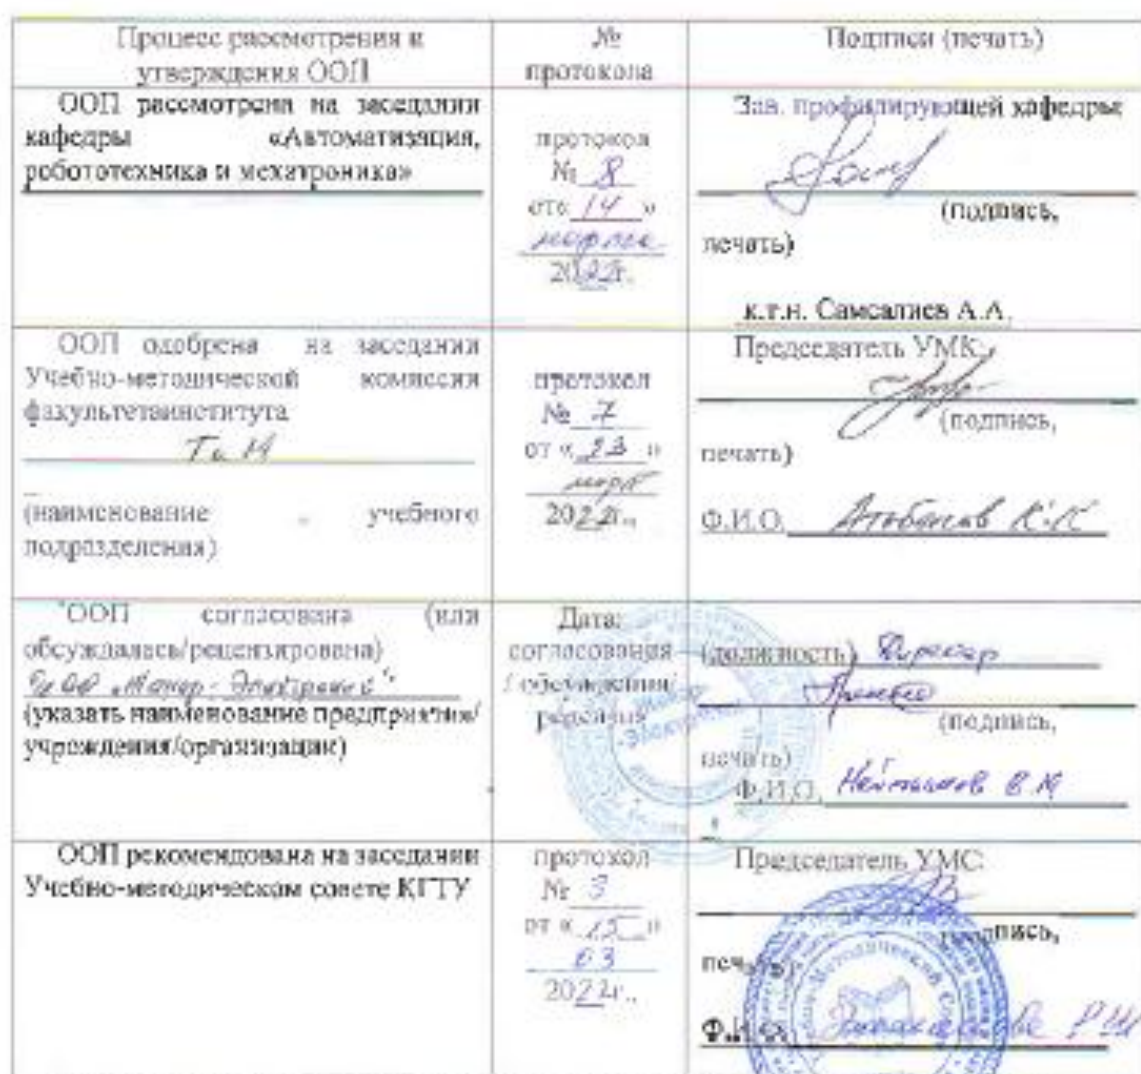 Процесс рассмотрения и
утверждения ООП
№
протокола
Подписи (печать)
ООП рассмотрена на заседании
кафедры «Автоматизация,
робототехника и мехатроника»
протокол
№ 8
от« 14 »
марта
2022г.
Зав. профилирующей кафедры
(подпись,
печать)
к.т.н. Самсалиев А.А.
ООП одобрена на заседании
Учебно-методической комиссии
факультетаинститута
(наименование учебного
подразделения)
протокол
№ 7
от « 23 »
март
2022г.,
Председатель УМК:
(подпись,
печать)
Ф.И.О. К.К
ООП согласована (или
обсуждалась/рецензирована)
(указать наименование предприятия/
учреждения/организации)
Дата:
согласования
/обсуждения/
(должность) Директор
(подпись,
печать)
Ф.И.О. В М
ООП рекомендована на заседании
Учебно-методическом совете КГТУ
протокол
№ 3
от « 15 »
03
2022г.,
Председатель УМС:
подпись,
печать)
Ф.И.О. Р Ш